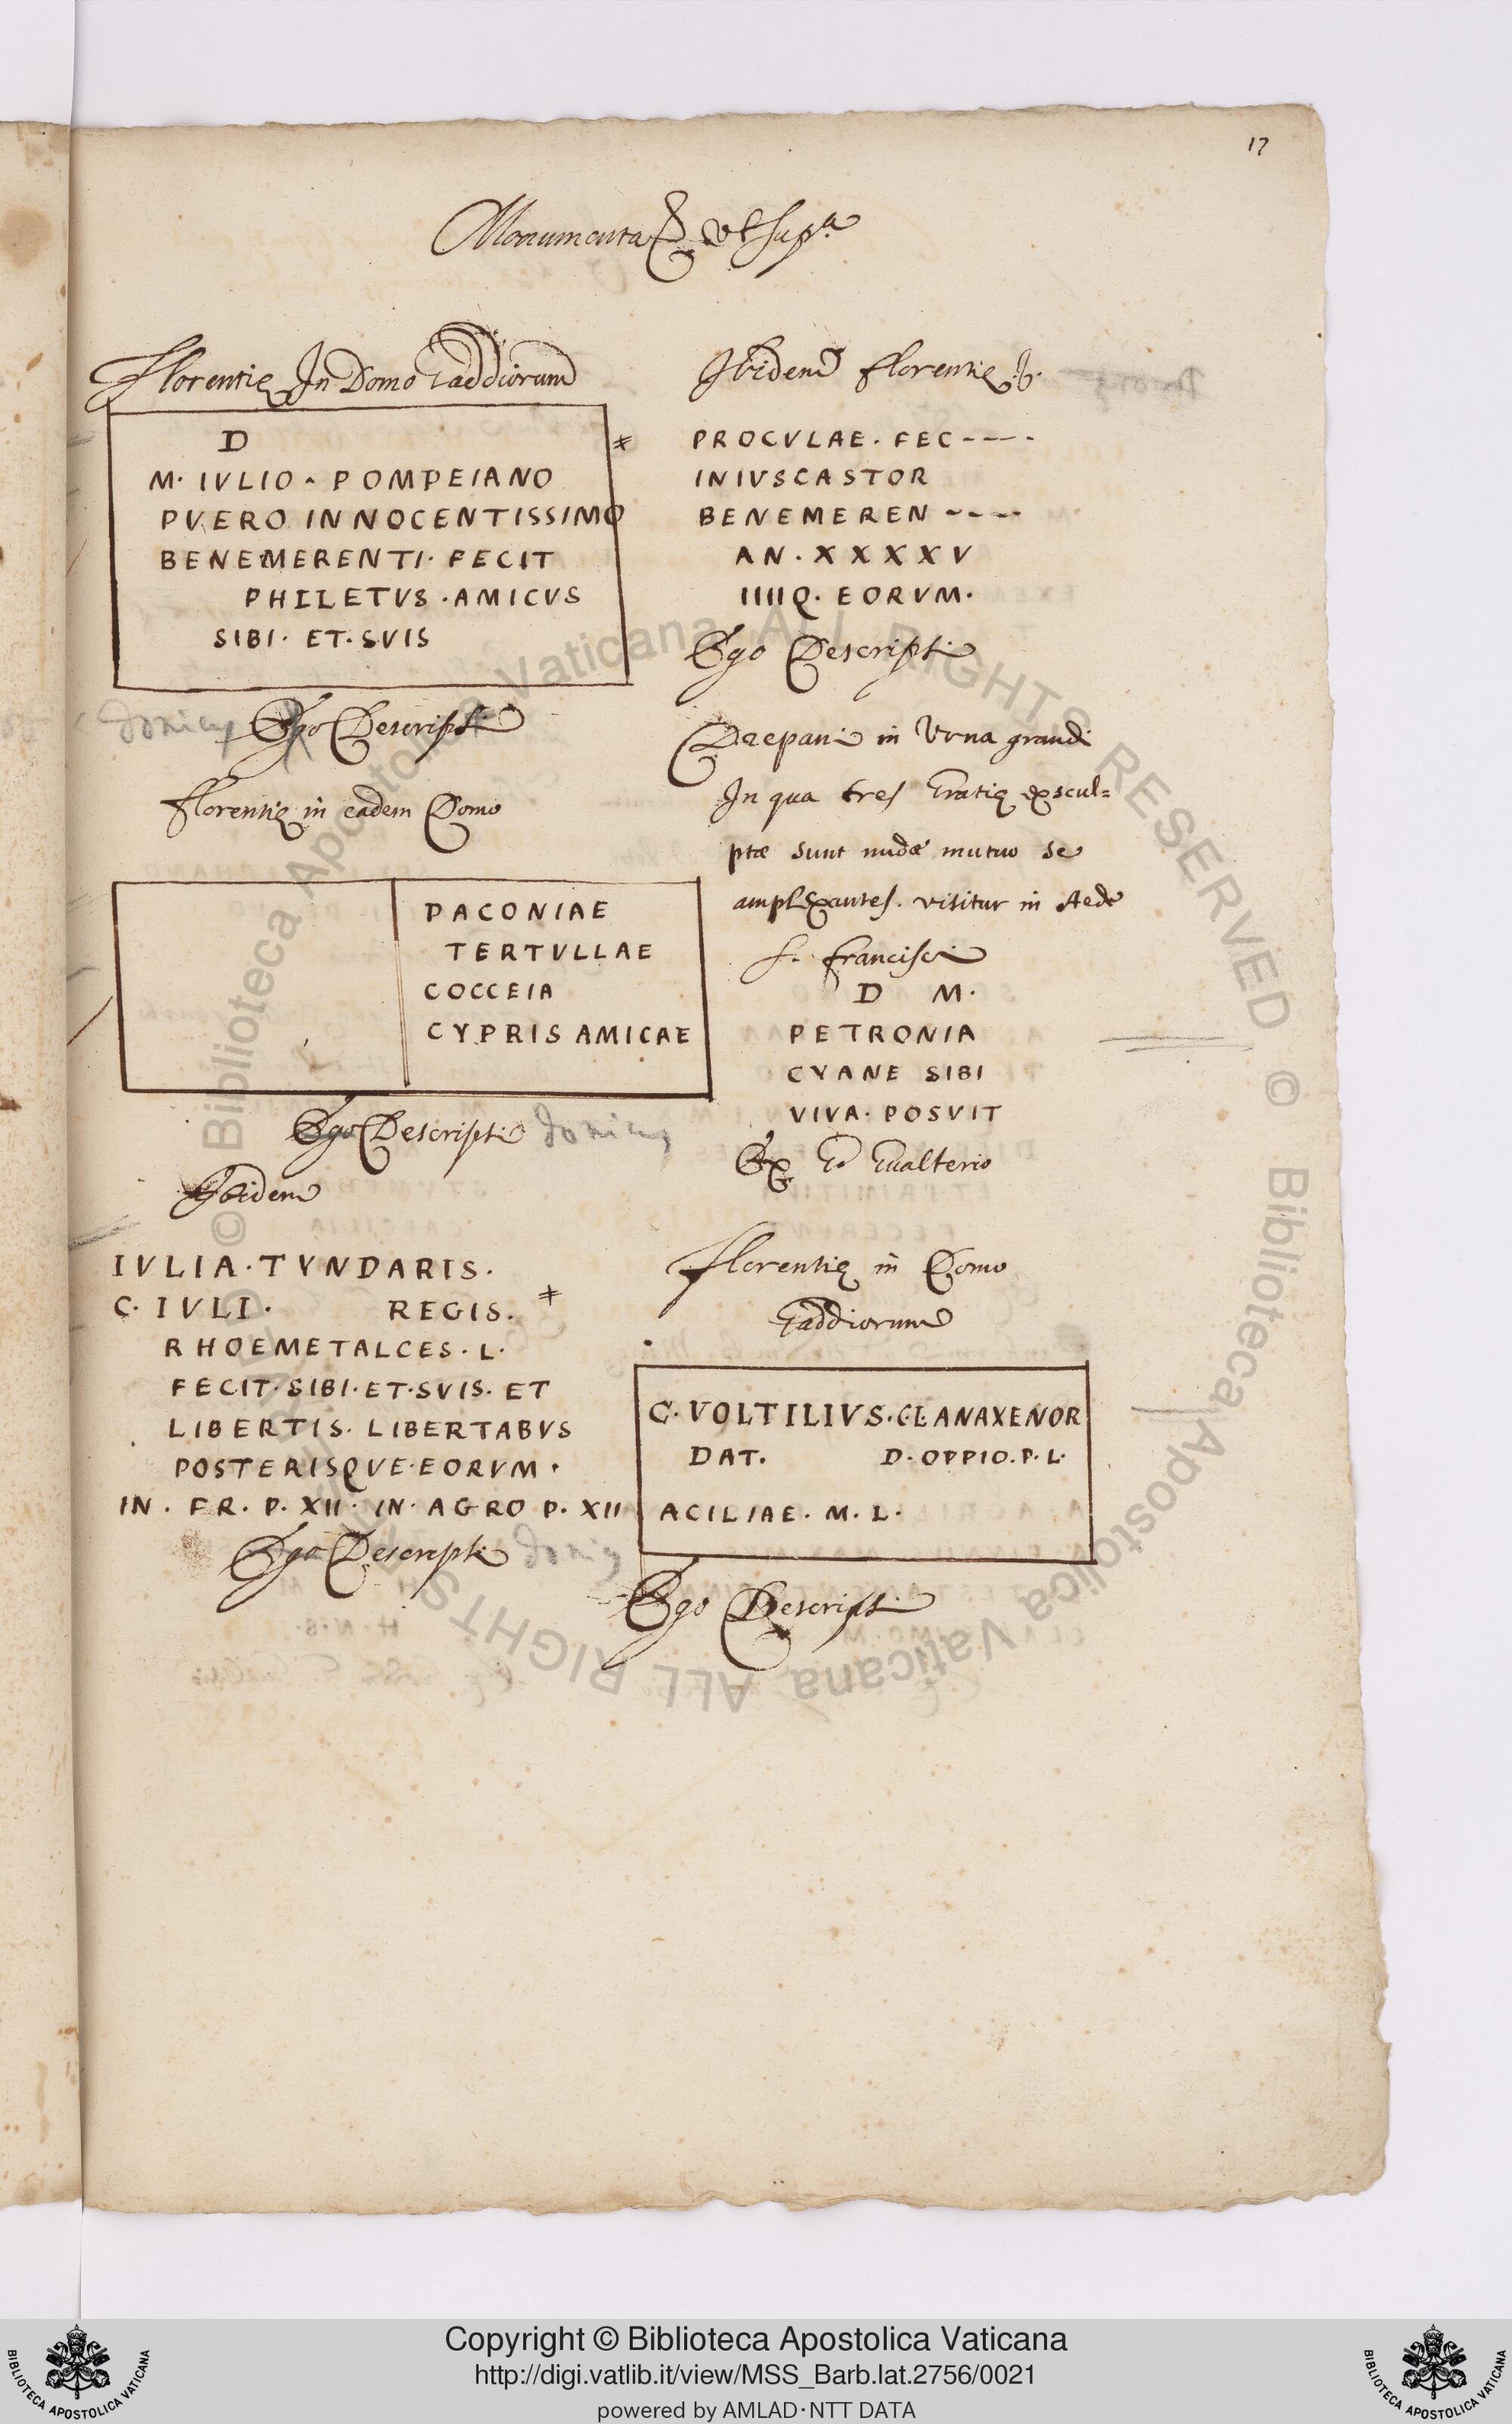 17
Monumenta & vt sup.ª
Florentię In Domo Gaddiorum
D
M. IVLIO . POMPEIANO
PVERO INNOCENTISSIMO
BENEMERENTI. FECIT
PHILETVS . AMICVS
SIBI. ET. SVIS
Ego Descripsi
Florentię in eadem Domo
PACONIAE
TERTVLLAE
COCCEIA
CYPRIS AMICAE
Ego Descripsi Donius
Ibidem
IVLIA . TYNDARIS .
C. IVLI . REGIS . *
RHOEMETALCES . L .
FECIT. SIBI. ET. SVIS. ET
LIBERTIS. LIBERTABVS
POSTERISQVE. EORVM .
IN . FR. P. XII. IN. AGRO P. XII
Ego Descripsi Donius
Ibidem Florentię
* PROCVLAE. FEC----
INIVSCASTOR
BENEMEREN ----
AN . XXXXV
IIIIQ. EORVM.
Ego Descripsi
Drepani in Vrna grandi
In qua tres Gratię exscul=
ptæ sunt nudæ mutuo se
amplexantes. visitur in Aede
S. Francisci
D M.
PETRONIA
CYANE SIBI
VIVA. POSVIT
Ex G. Gualterio
Florentię in Domo
Gaddiorum
C. VOLTILIVS. C. L ANAXENOR
DAT. D. OPPIO. P. L.
ACILIAE. M. L.
Ego Descripsi
© Biblioteca Apostolica Vaticana ALL RIGHTS RESERVED © Biblioteca Apostolica Vaticana ALL RIGHTS RESERVED
Copyright © Biblioteca Apostolica Vaticana
http://digi.vatlib.it/view/MSS_Barb.lat.2756/0021
powered by AMLAD·NTT DATA
BIBLIOTECA APOSTOLICA VATICANA
BIBLIOTECA APOSTOLICA VATICANA